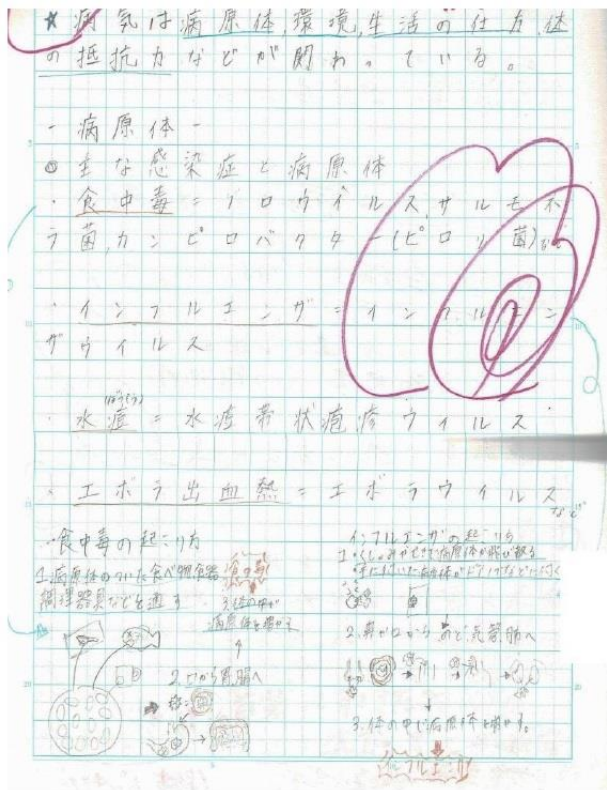 ☆病気は病原体,環境,生活の仕方,体
の抵抗力などが関わっている。
-病原体-
◎主な感染症と病原体
・食中毒=ノロウイルス,サルモネ
ラ菌,カンピロバクター(ピロリ菌)など
・インフルエンザ=インフルエン
ザウイルス
・水痘=水痘帯状疱疹ウイルス
・エボラ出血熱=エボラウイルス
など
・食中毒の起こり方
1.病原体のついた食べ物,食器
調理器具などを通す
食中毒!
3.体の中で
病原体を増やす
2.口から胃,腸へ
インフルエンザの起こり方
1.・くしゃみやせきで病原体が飛び散る
2.鼻か口から のど,気管,肺へ
3.体の中で病原体を増やす。
インフルエンザ!